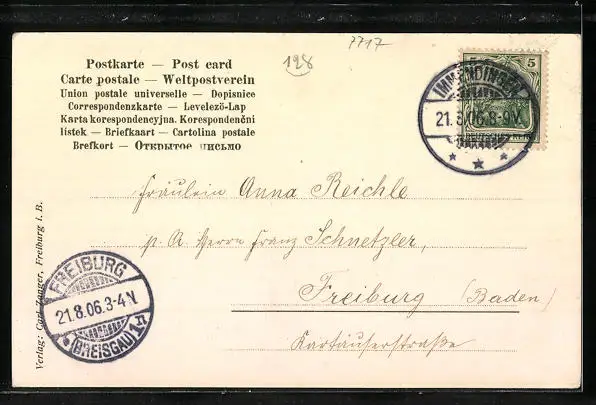 Postkarte — Post card
Carte postale — Weltpostverein
Union postale universelle — Dopisnice
Correspondenzkarte — Levelező-Lap
Karta korespondencyjna. Korespondenční
lístek — Briefkaart — Cartolina postale
Brefkort — Открытое письмо
128
7717
5 5
IMMENDINGEN
21.8.06.8-9V.
Fräulein Anna Reichle
p. A. Herrn Franz Schnetzler,
Freiburg (Baden)
Kartäuserstraße
FREIBURG
21.8.06.3-4N.
(BREISGAU) 1
Verlag: Carl Zenger, Freiburg i. B.